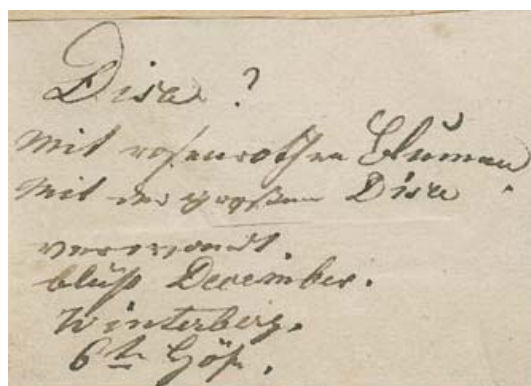 Disa ?
Mit rosenrothen Blumen,
Mit der großen Disa
verwandt.
blüht December.
Winterberg.
6te Höh.